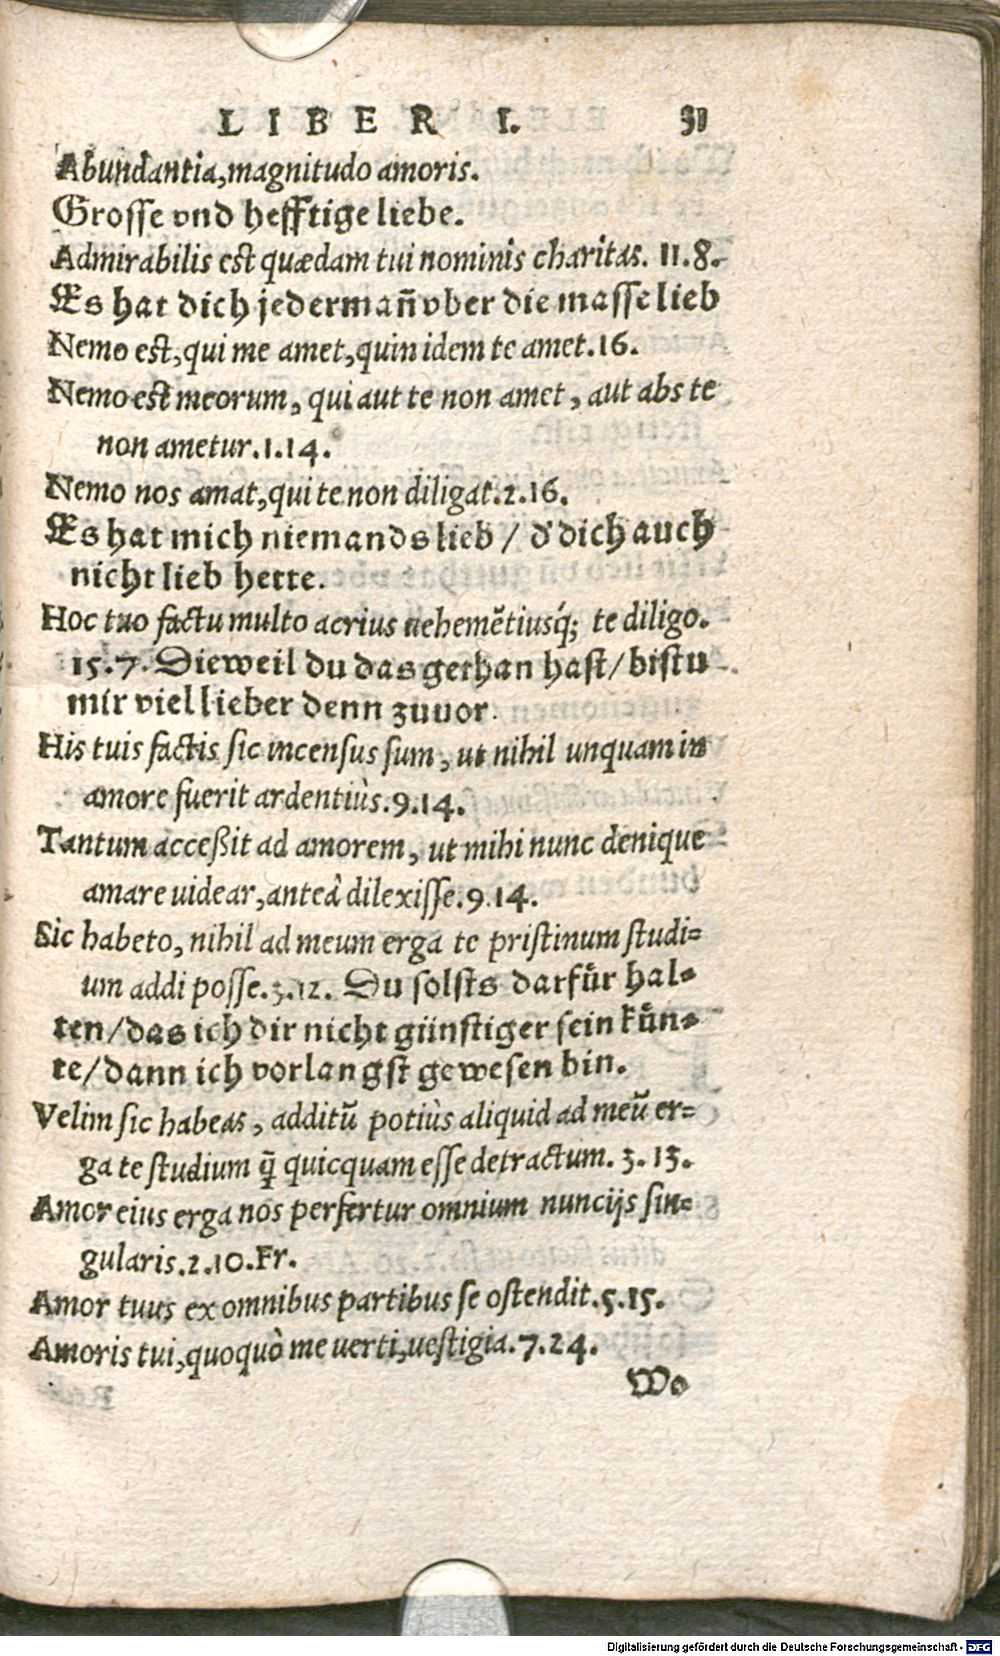 LIBER I. 31
Abundantia, magnitudo amoris.
Grosse vnd hefftige liebe.
Admirabilis est quædam tui nominis charitas. 11.8.
Es hat dich jederman̄ vber die masse lieb
Nemo est, qui me amet, quin idem te amet. 16.
Nemo est meorum, qui aut te non amet, aut abs te
non ametur. 1.14.
Nemo nos amat, qui te non diligat. 2.16.
Es hat mich niemands lieb / d' dich auch
nicht lieb hette.
Hoc tuo factu multo acrius uehemẽtiusq́; te diligo.
15.7. Dieweil du das gethan hast / bistu
mir viel lieber denn zuuor.
His tuis factis sic incensus sum, ut nihil unquam in
amore fuerit ardentiùs. 9.14.
Tantum acceßit ad amorem, ut mihi nunc denique
amare uidear, anteâ dilexisse. 9.14.
Sic habeto, nihil ad meum erga te pristinum studi=
um addi posse. 3.12. Du solsts darfür hal=
ten / das ich dir nicht günstiger sein kün=
te / dann ich vorlangst gewesen bin.
Velim sic habeas, additū potiùs aliquid ad meū er=
ga te studium q̄ quicquam esse detractum. 3.13.
Amor eius erga nos perfertur omnium nuncijs sin=
gularis. 2.10. Fr.
Amor tuus ex omnibus partibus se ostendit. 5.15.
Amoris tui, quoquò me uerti, uestigia. 7.24.
Wo
Digitalisierung gefördert durch die Deutsche Forschungsgemeinschaft - DFG